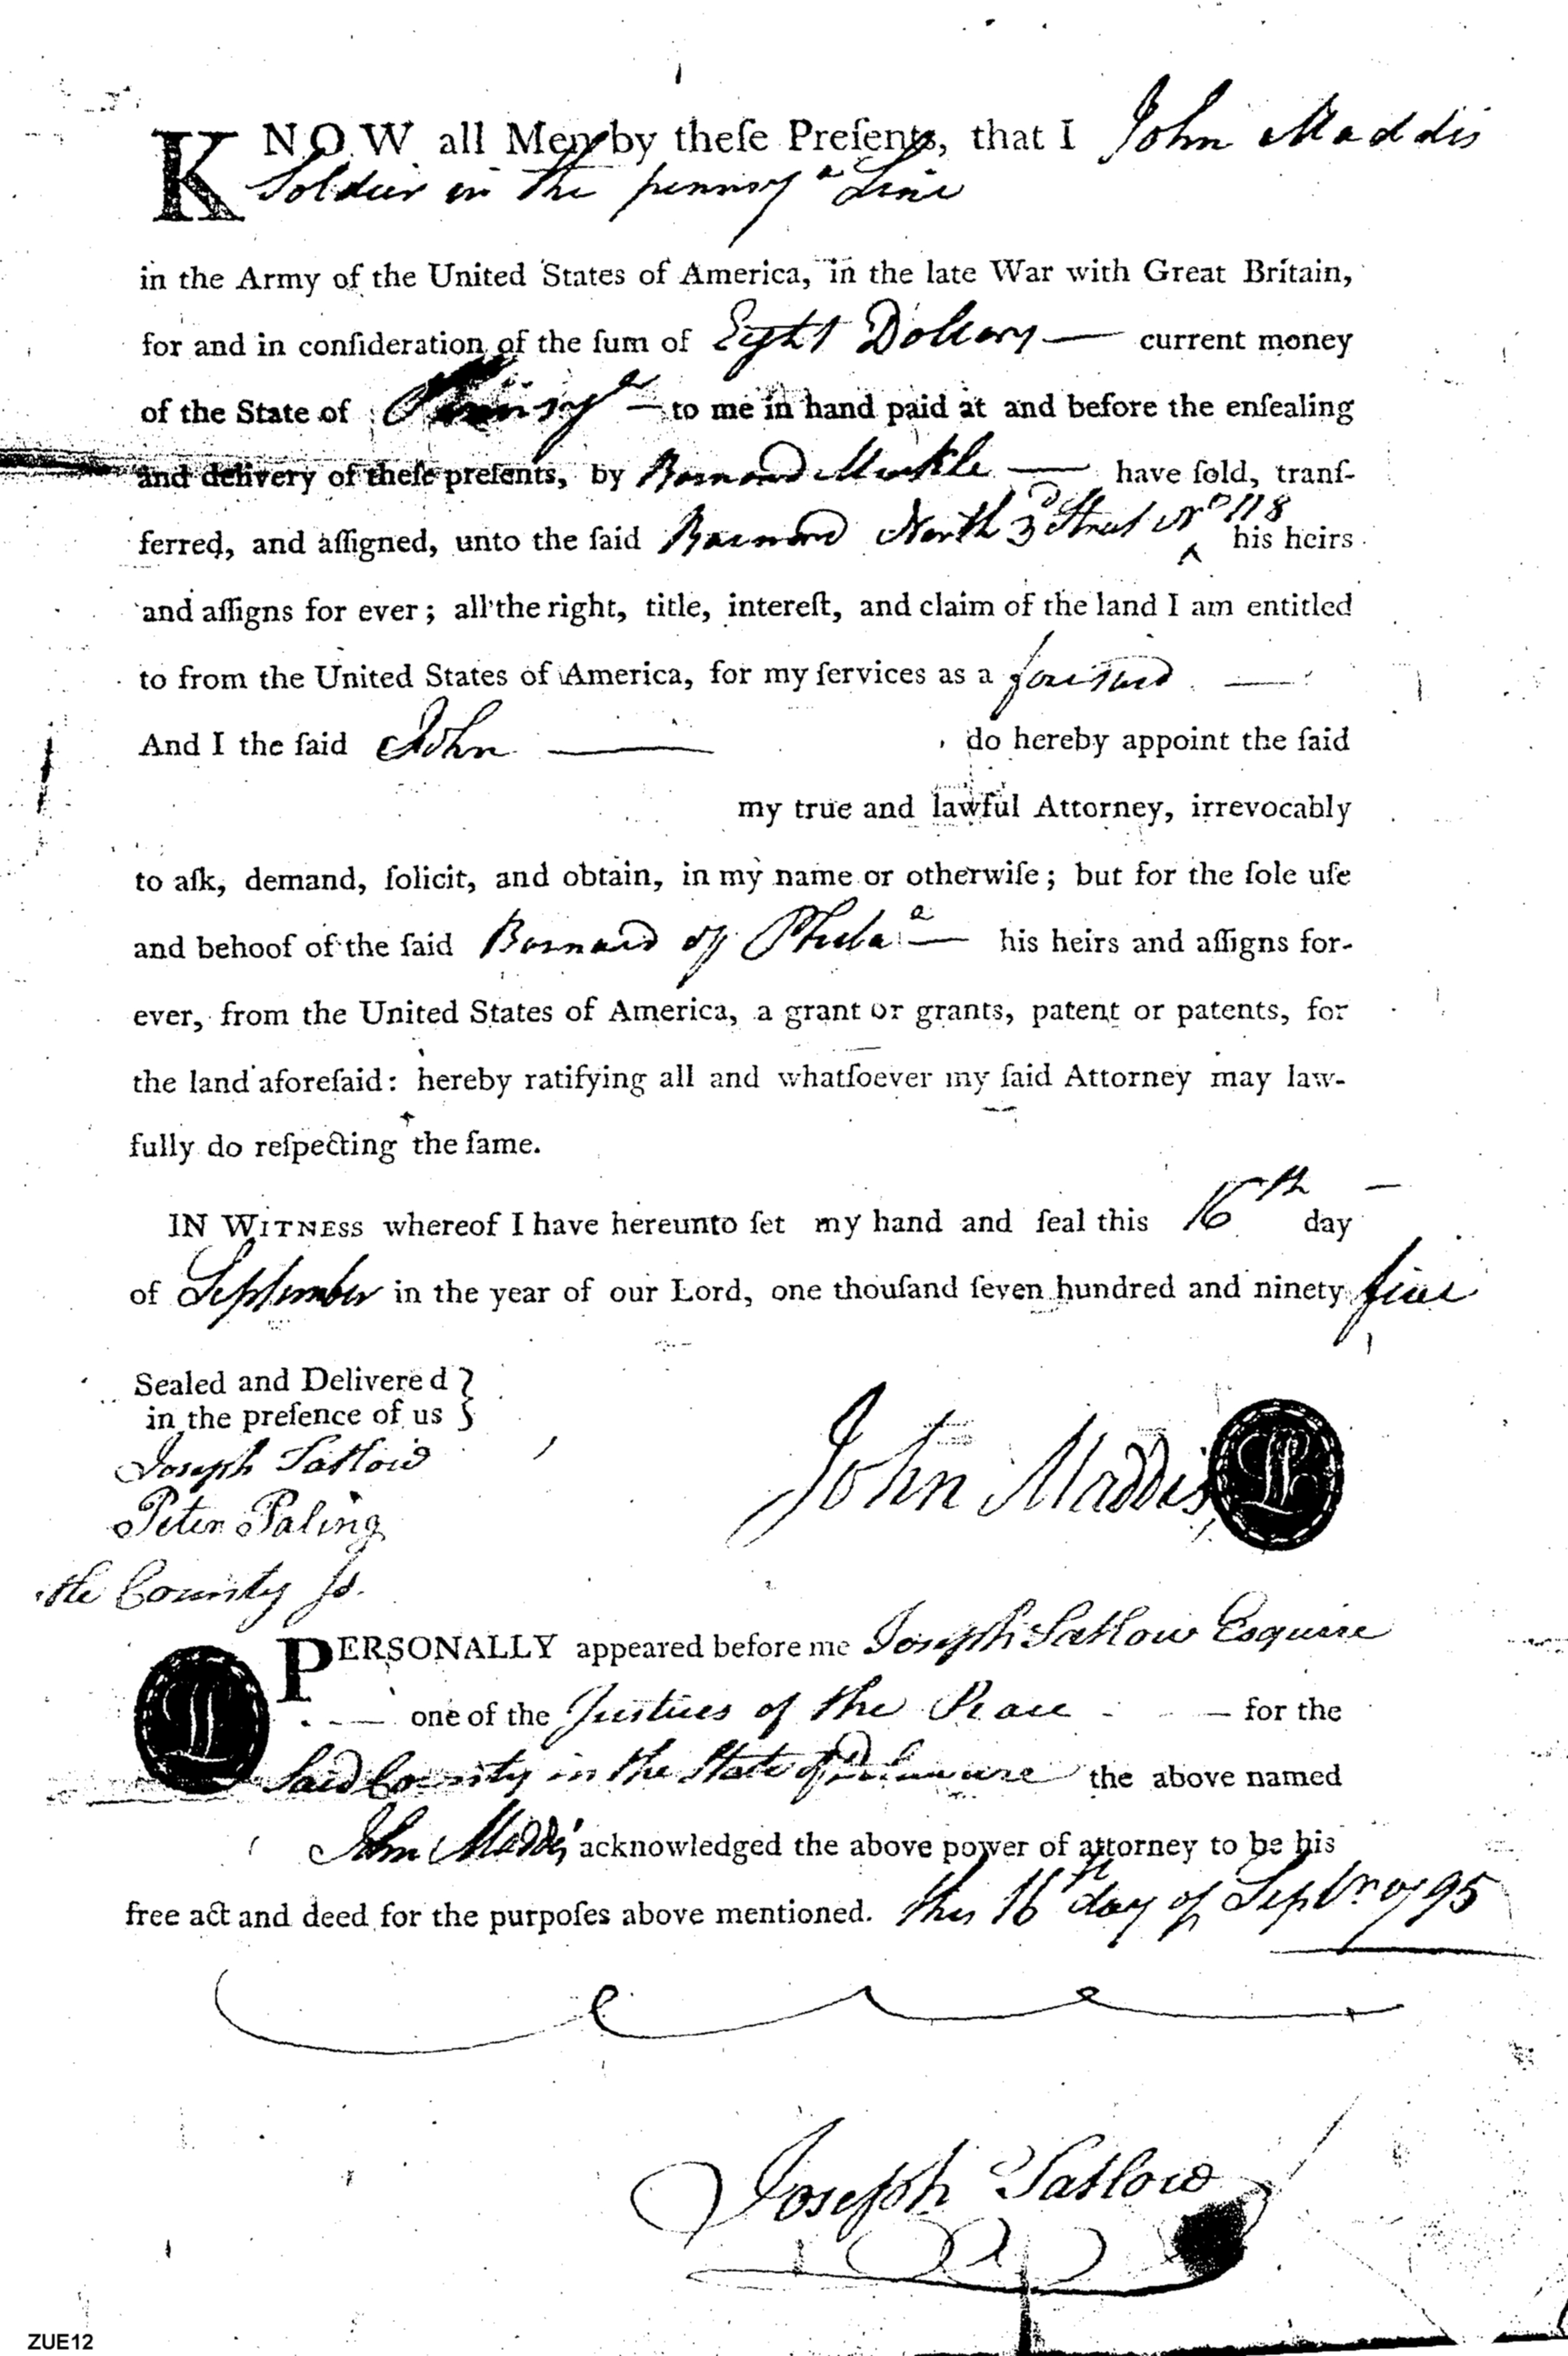 KNOW all Men by theſe Preſents, that I John Maddis
Soldier in the pennsyᵃ Line
in the Army of the United States of America, in the late War with Great Britain,
for and in conſideration of the ſum of Eight Dollars — current money
of the State of Pennsyᵃ — to me in hand paid at and before the enſealing
and delivery of theſe preſents, by Barnard Merkle — have ſold, tranſ-
ferred, and aſſigned, unto the ſaid Barnard North 3ᵈ Street Nº 118 his heirs
and aſſigns for ever; all the right, title, intereſt, and claim of the land I am entitled
to from the United States of America, for my ſervices as a —
And I the ſaid John — do hereby appoint the ſaid
my true and lawful Attorney, irrevocably
to aſk, demand, ſolicit, and obtain, in my name or otherwiſe; but for the ſole uſe
and behoof of the ſaid Barnard of Philaᵃ — his heirs and aſſigns for-
ever, from the United States of America, a grant or grants, patent or patents, for
the land aforeſaid: hereby ratifying all and whatſoever my ſaid Attorney may law-
fully do reſpecting the ſame.
IN WITNESS whereof I have hereunto ſet my hand and ſeal this 16th — day
of September in the year of our Lord, one thouſand ſeven hundred and ninety five
Sealed and Delivered }
in the preſence of us }
Joseph Tatlow
Peter Paling
John Maddis
tle County ss.
PERSONALLY appeared before me Joseph Tatlow Esquire
— one of the Justices of the Peace — for the
Said County in the State of Delaware the above named
John Maddis acknowledged the above power of attorney to be his
free act and deed for the purpoſes above mentioned. this 16th day of Sepbr 1795
Joseph Tatlow
ZUE12